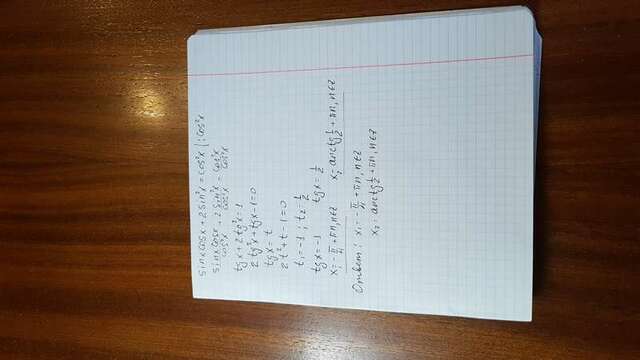 sinx cosx + 2 sin²x = cos²x |: cos²x
sinx cosx/cos²x + 2 sin²x/cos²x = cos²x/cos²x
tgx + 2tg²x = 1
2tg²x + tgx - 1 = 0
tgx = t
2t² + t - 1 = 0
t₁ = -1 ; t₂ = 1/2
tgx = -1 tgx = 1/2
x₁ = -π/4 + πn, n∈Z x₂ = arctg 1/2 + πn, n∈Z
Ответ: x₁ = -π/4 + πn, n∈Z
x₂ = arctg 1/2 + πn, n∈Z